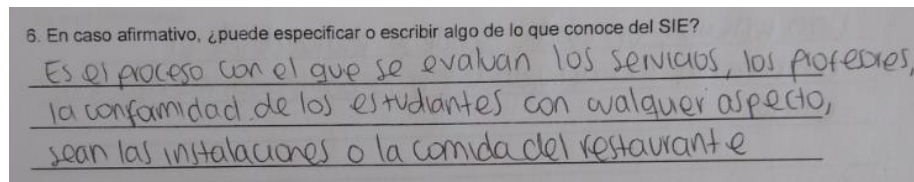 6. En caso afirmativo, ¿puede especificar o escribir algo de lo que conoce del SIE?
Es el proceso con el que se evaluan los servicios, los profesores,
la conformidad de los estudiantes con cualquer aspecto,
sean las instalaciones o la comida del restaurante